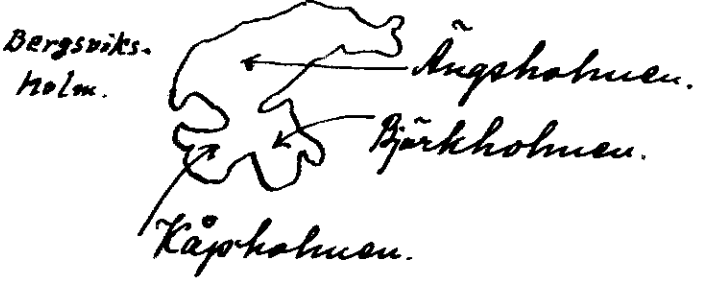 Bergsviks-
holm.
Ängsholmen.
Björkholmen.
Kåpholmen.